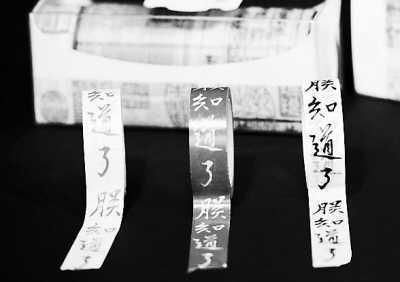 知道了朕知道了
朕知道了朕知道了
朕知道了朕知道了